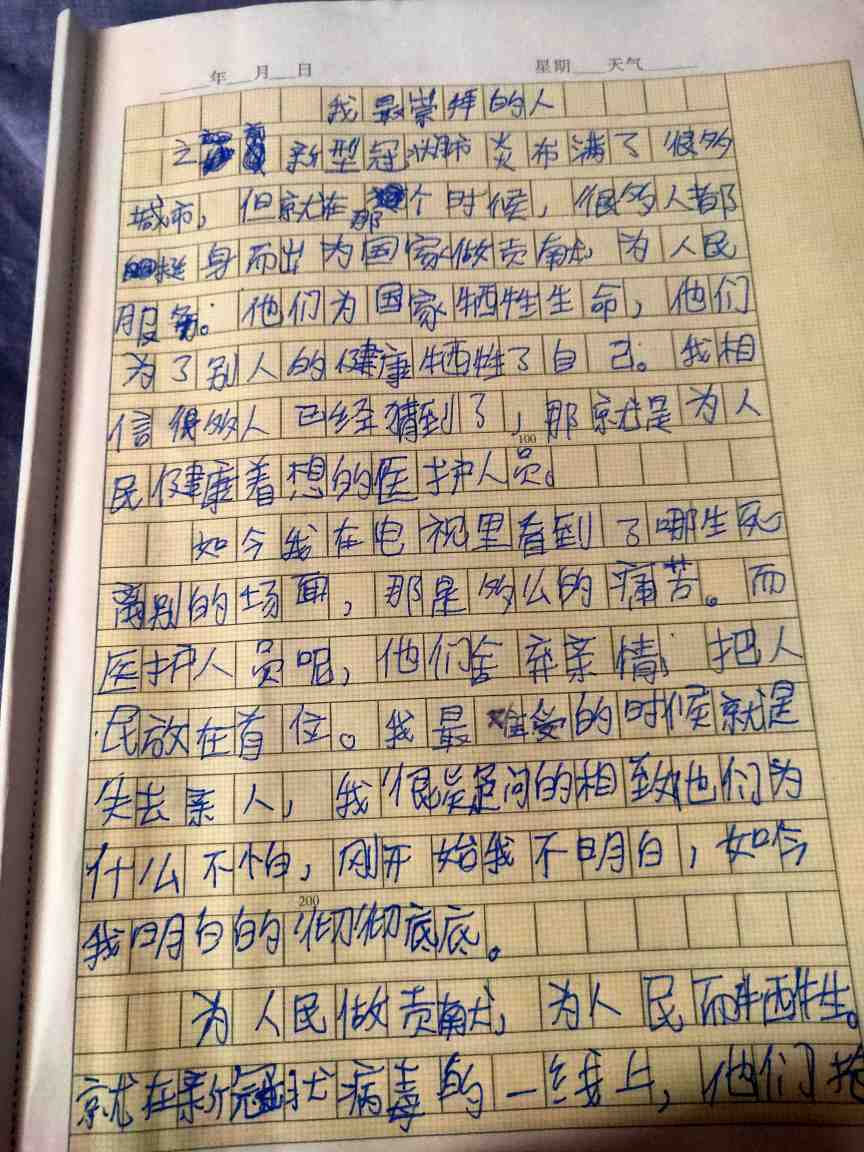 年 月 日 星期 天气
我最崇拜的人
之前新型冠状肺炎布满了很多
城市，但就在那个时候，很多人都
挺身而出为国家做贡献，为人民
服务。他们为国家牺牲生命，他们
为了别人的健康牺牲了自己。我相
信很多人已经猜到了，那就是为人
100
民健康着想的医护人员。
如今我在电视里看到了哪生死
离别的场面，那是多么的痛苦。而
医护人员呢，他们舍弃亲情，把人
民放在首位。我最难受的时候就是
失去亲人，我很疑问的相 他们为
什么不怕，刚开始我不明白，如今
200
我明白的彻彻底底。
为人民做贡献，为人民而牺牲。
就在新冠状病毒的一线上，他们抢